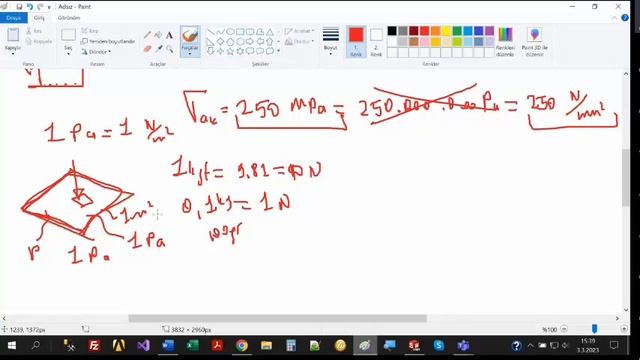 Adsız - Paint
Dosya Giriş Görünüm
Yapıştır
Seç
Yeniden boyutlandır
Döndür
Fırçalar
Boyut
1. Renk
2. Renk
Renkleri düzenle
Paint 3D ile düzenle
Pano
Görüntü
Araçlar
Şekiller
Renkler
σak = 250 MPa = 250.000.000 Pa = 250 N/mm²
1 Pa = 1 N/m²
1 kgf = 9.81 = 10 N
0,1 kg = 1 N
100gr
1m²
1 Pa
P
1 Pa
1239, 1372px
3832 × 2960px
%100
15:39
3.3.2023